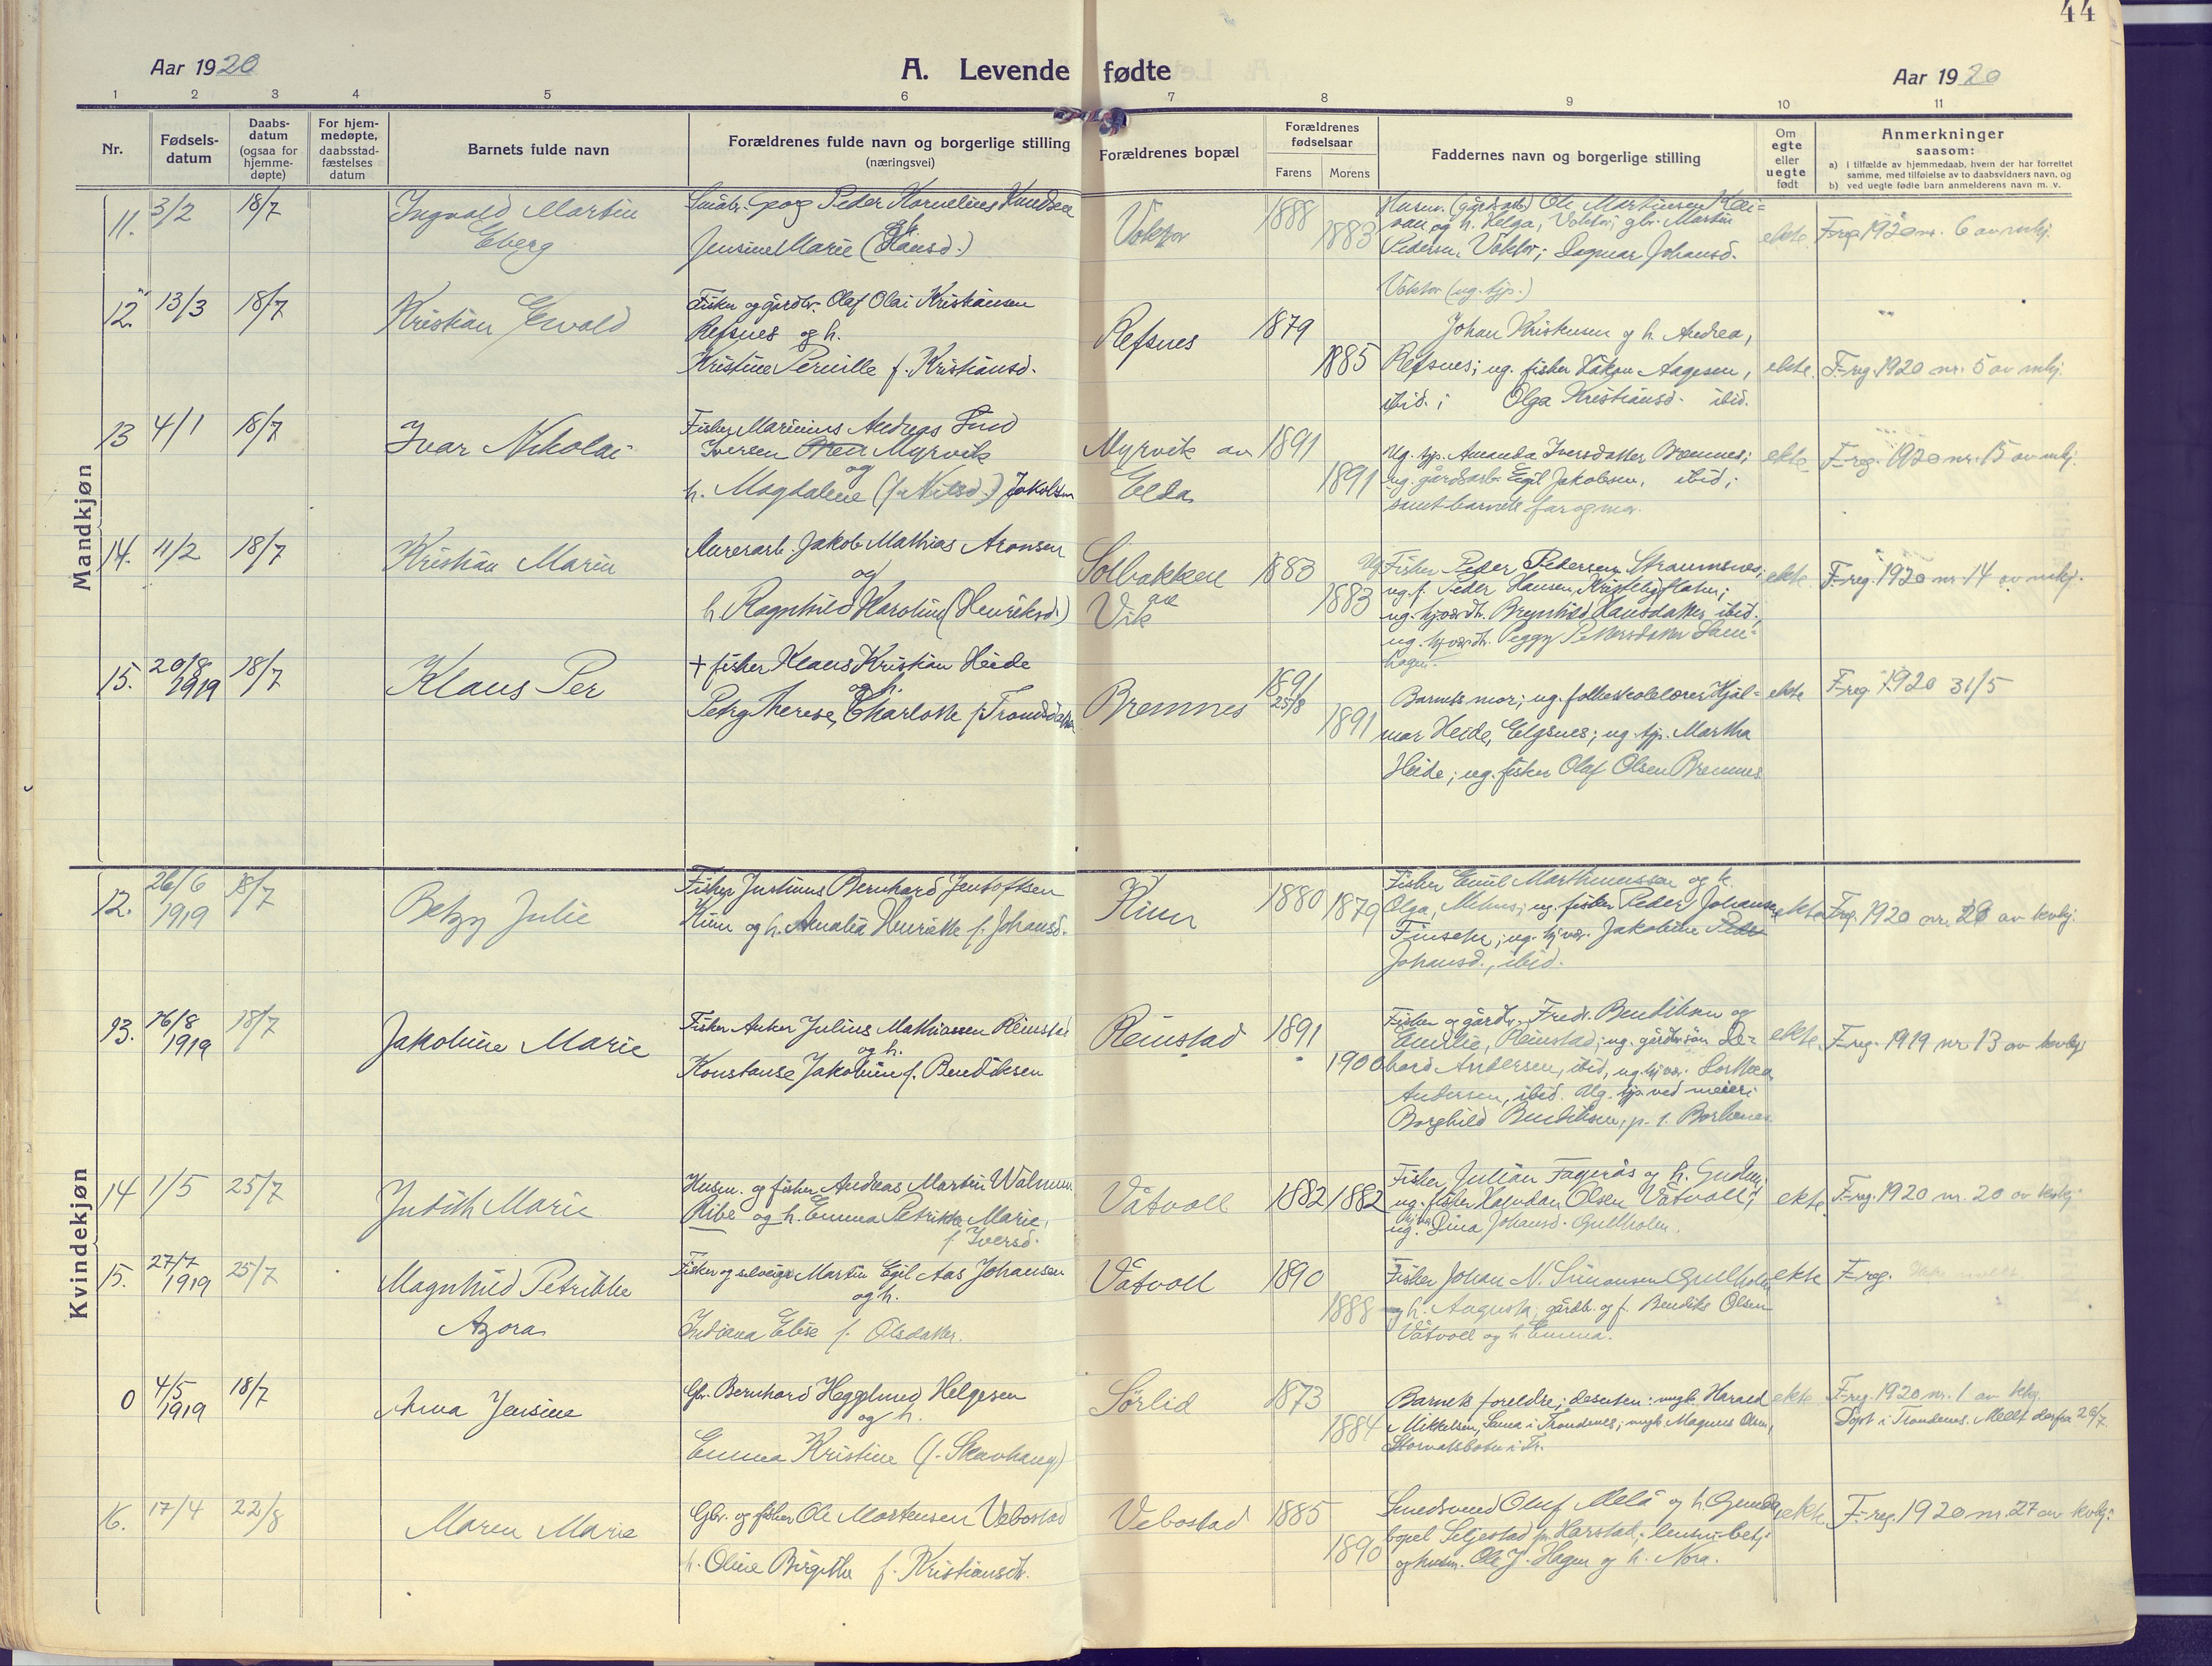 44
Aar 1920
A. Levende fødte
Aar 1920
1 2 3 4 5 6 7 8 9 10 11
Nr.
Fødsels-
datum
Daabs-
datum
(ogsaa for
hjemme-
døpte)
For hjem-
medøpte,
daabsstad-
fæstelses
datum
Barnets fulde navn
Forældrenes fulde navn og borgerlige stilling
(næringsvei)
Forældrenes bopæl
Forældrenes
fødselsaar
Farens Morens
Faddernes navn og borgerlige stilling
Om
egte
eller
uegte
født
Anmerkninger
saasom:
a) i tilfælde av hjemmedaab, hvem der har forrettet
samme, med tilføielse av to daabsvidners navn, og
b) ved uegte fødte barn anmelderens navn m. v.
Mandkjøn
11. 3/2 18/7
Ingvald Martin
Eberg
Peder Kornelius Knudsen
og h.
Jensine Marie (Hansd.)
Voktor
1888
1883
Ole Martinsen
og h. Helga, Voktor; gbr. Martin
Pedersen, Voktor; Dagmar Johansd.
Voktor (ug. tjp.)
ekte.
F-reg. 1920 nr. 6 av mkj.
12. 13/3 18/7
Kristian Ewald
Fisker og gårdbr. Olaf Olai Kristiansen
Refsnes og h.
Kristine Pernille f. Kristiansd.
Refsnes
1879
1885
Johan Kristensen og h. Andrea,
Refsnes; ug. fisker Håkon Aagesen,
ibid.; Olga Kristiansd. ibid.
ekte.
F-reg. 1920 nr. 5 av mkj.
13 4/1 18/7
Ivar Nikolai
Fisker Marinius Andreas Lind
Iversen Myrvik
og
h. Magdalene (f. Nilsd.) Jakobsen
Myrvik av
Elda
1891
1891
Ug. tjp. Amanda Iversdatter Bremnes;
ug. gårdsarb. Egil Jakobsen, ibid;
samt barnets far og mor.
ekte
F-reg. 1920 nr. 15 av mkj.
14. 11/2 18/7
Kristian Marin
Murerarb. Jakob Mathias Aronsen
og
h. Ragnhild Karoline (Henriksd.)
Solbakken
av
Vik
1883
1883
Ug. Fisker Peder Pedersen Straumsnes;
ug. f. Peder Hansen,
ug. hj.værdr. Brynhild Hansdatter ibid;
ug. hj.værdr. Peggy Pettersdatter
ekte
F-reg. 1920 nr. 14 av mkj.
15. 20/8
1919 18/7
Klaus Per
+ fisker Klaus Kristian Heide
og h.
Petra Therese Charlotte f. Tronds datter
Bremnes
1891
25/8
1891
Barnets mor; ug. folkeskolelærer Hjal-
mar Heide, Elgsnes; ug. tjp. Martha
Heide; ug. fisker Olaf Olsen Bremnes
ekte
F-reg. 1920 31/5
Kvindekjøn
12. 26/6
1919 18/7
Betzy Julie
Fisker Justinus Bernhard Jentoftsen
Kinn og h. Amalia Henriette f. Johansd.
Kinn
1880 1879
Fisker Emil Marthinussen og h.
Olga, Melnes; ug. fisker Peder Johansen
ug. hj.vær. Jakobine Peder
Johansd., ibid.
ekte
F-reg. 1920 nr. 28 av kvkj.
13. 16/8
1919 18/7
Jakobine Marie
Fisker Anker Julius Mathiassen Reinstad
og h.
Konstanse Jakobine f. Bendiksen
Reinstad
1891
1900
Fisker og gårdbr. Fredr. Bendiksen og
Emelie, Reinstad; ug. gårdbr.søn De-
hard Andersen, ibid, ug. hj.vær. Dorthea
Andersen, ibid. Ug. tjp. ved meieri
Borghild Bendiksen, p. t. Borkenes
ekte.
F-reg. 1919 nr 13 av kvkj.
14 1/5 25/7
Judith Marie
Husm. og fisker Andreas Martin
Ribe og h. Emma Petrikke Marie,
f. Iversd.
Våtvoll
1882 1882
Fisker Julian Fagerås og h. Gudrun;
ug. fisker Halvdan Olsen Våtvoll;
ug. Dina Johansd. Gullholm.
ekte.
F-reg. 1920 nr. 20 av kvkj.
15. 27/7
1919 25/7
Magnhild Petrikke
Azora
Fisker og selveier Martin Egil Aas Johansen
og h.
Indiana Elise f. Olsdatter.
Våtvoll
1890
1888
Fisker Johan N. Simonsen Gullholm
og h. Augusta; gårdb. og f. Bendiks Olsen
Våtvoll og h. Emma.
ekte
F-reg.
0 4/5
1919 18/7
Anna Jensine
Gbr. Bernhard Hegglund Helgesen
og h.
Emma Kristine (f. Skavhaug)
Sørlid
1873
1884
Barnets foreldre; desuten: ungk. Harald
Mikkelsen, i Trondenes; ungk. Magnus Olsen,
Storvatsbotn i Tr.
ekte
F-reg. 1920 nr. 1 av kkj.
Døpt i Trondenes. Meldt derfra 26/7.
16. 17/4 22/8
Maren Marie
Gbr. og fisker Ole Mortensen Vebostad
h. Oline Birgithe f. Kristiansdtr.
Vebostad
1885
1890
Smedsvend Oluf Melå og h. Gunda,
bopel Seljestad pr. Harstad; lensm.betj.
og husm. Ole J. Hagen og h. Nora.
ekte.
F-reg. 1920 nr. 27 av kvkj.